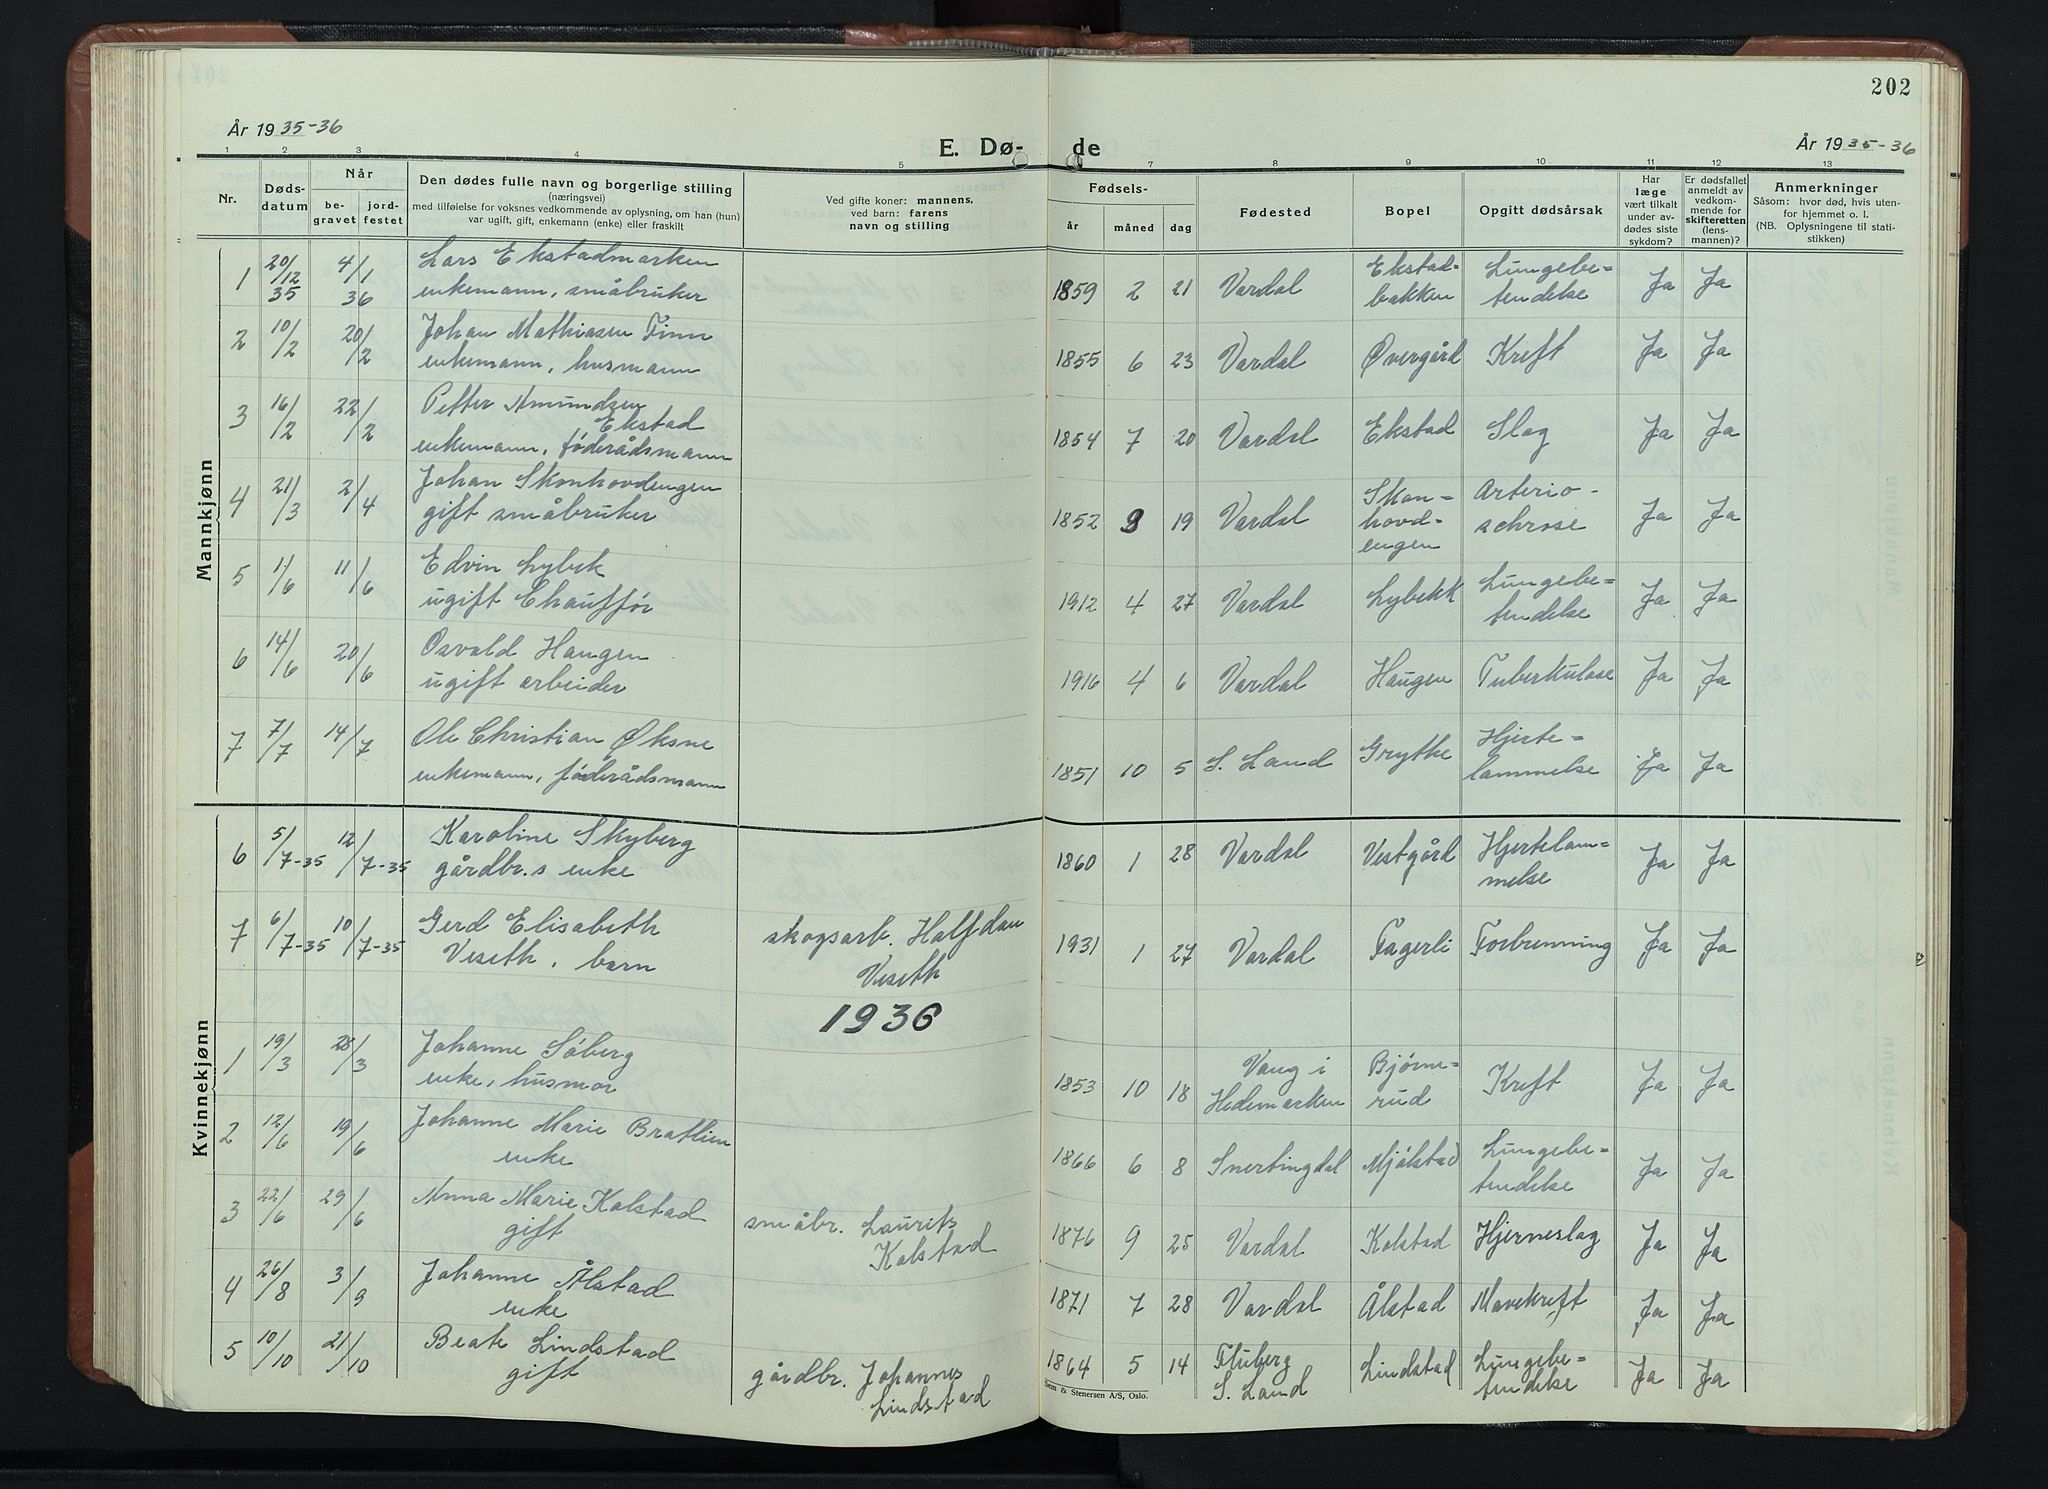 202
År 1935-36
E. Dø-
de
År 1935-36
1 2 3 4 5 7 8 9 10 11 12 13
Nr.
Døds-
datum
Når
be-
gravet
jord-
festet
Den dødes fulle navn og borgerlige stilling
(næringsvei)
med tilføielse for voksnes vedkommende av oplysning, om han (hun)
var ugift, gift, enkemann (enke) eller fraskilt
Ved gifte koner: mannens,
ved barn: farens
navn og stilling
Fødsels-
år måned dag
Fødested
Bopel
Opgitt dødsårsak
Har
læge
vært tilkalt
under av-
dødes siste
sykdom?
Er dødsfallet
anmeldt av
vedkom-
mende for
skifteretten
(lens-
mannen)?
Anmerkninger
Såsom: hvor død, hvis uten-
for hjemmet o. l.
(NB. Oplysningene til stati-
stikken)
Mannkjønn
1 20/12 35 4/1 36 Lars Ekstadmarken
enkemann, småbruker
1859 2 21 Vardal Ekstad-
bakken Lungebe-
tendelse Ja Ja
2 10/2 20/2 Johan Mathiasen Finn
enkemann, husmann
1855 6 23 Vardal Øvergård Kreft Ja Ja
3 16/2 22/2 Petter Amundsen
Ekstad
enkemann, føderådsmann
1854 7 20 Vardal Ekstad Slag Ja Ja
4 21/3 2/4 Johan Skonhovdengen
gift småbruker
1852 9 19 Vardal Skon-
hovd-
engen Arterio-
schrose Ja Ja
5 1/6 11/6 Edvin Lybek
ugift Chauffør
1912 4 27 Vardal Lybekk Lungebe-
tendelse Ja Ja
6 14/6 20/6 Osvald Haugen
ugift arbeider
1916 4 6 Vardal Haugen Tuberkulose Ja Ja
7 7/7 14/7 Ole Christian Øksne
enkemann, føderådsmann
1851 10 5 S. Land Grythe Hjerte-
lammelse Ja Ja
Kvinnekjønn
6 5/7-35 12/7-35 Karoline Skyberg
gårdbr.s enke
1860 1 28 Vardal Vestgård Hjertelam-
melse Ja Ja
7 6/7-35 10/7-35 Gerd Elisabeth
Veseth, barn
skogsarb. Halfdan
Veseth
1931 1 27 Vardal Fagerli Forbrenning Ja Ja
1936
1 19/3 28/3 Johanne Søberg
enke, husmor
1853 10 18 Vang i
Hedemarken Bjørne-
rud Kreft Ja Ja
2 12/6 19/6 Johanne Marie Bratlien
enke
1866 6 8 Snertingdal Mjølstad Lungebe-
tendelse Ja Ja
3 22/6 29/6 Anna Marie Kolstad
gift
småbr. Laurits
Kolstad
1876 9 25 Vardal Kolstad Hjerneslag Ja Ja
4 26/8 3/9 Johanne Ålstad
enke
1871 7 28 Vardal Ålstad Mavekreft Ja Ja
5 10/10 21/10 Beate Lindstad
gift
gårdbr. Johannes
Lindstad
1864 5 14 Fluberg
S. Land Lindstad Lungebe-
tendelse Ja Ja
Sem & Stenersen A/S, Oslo.